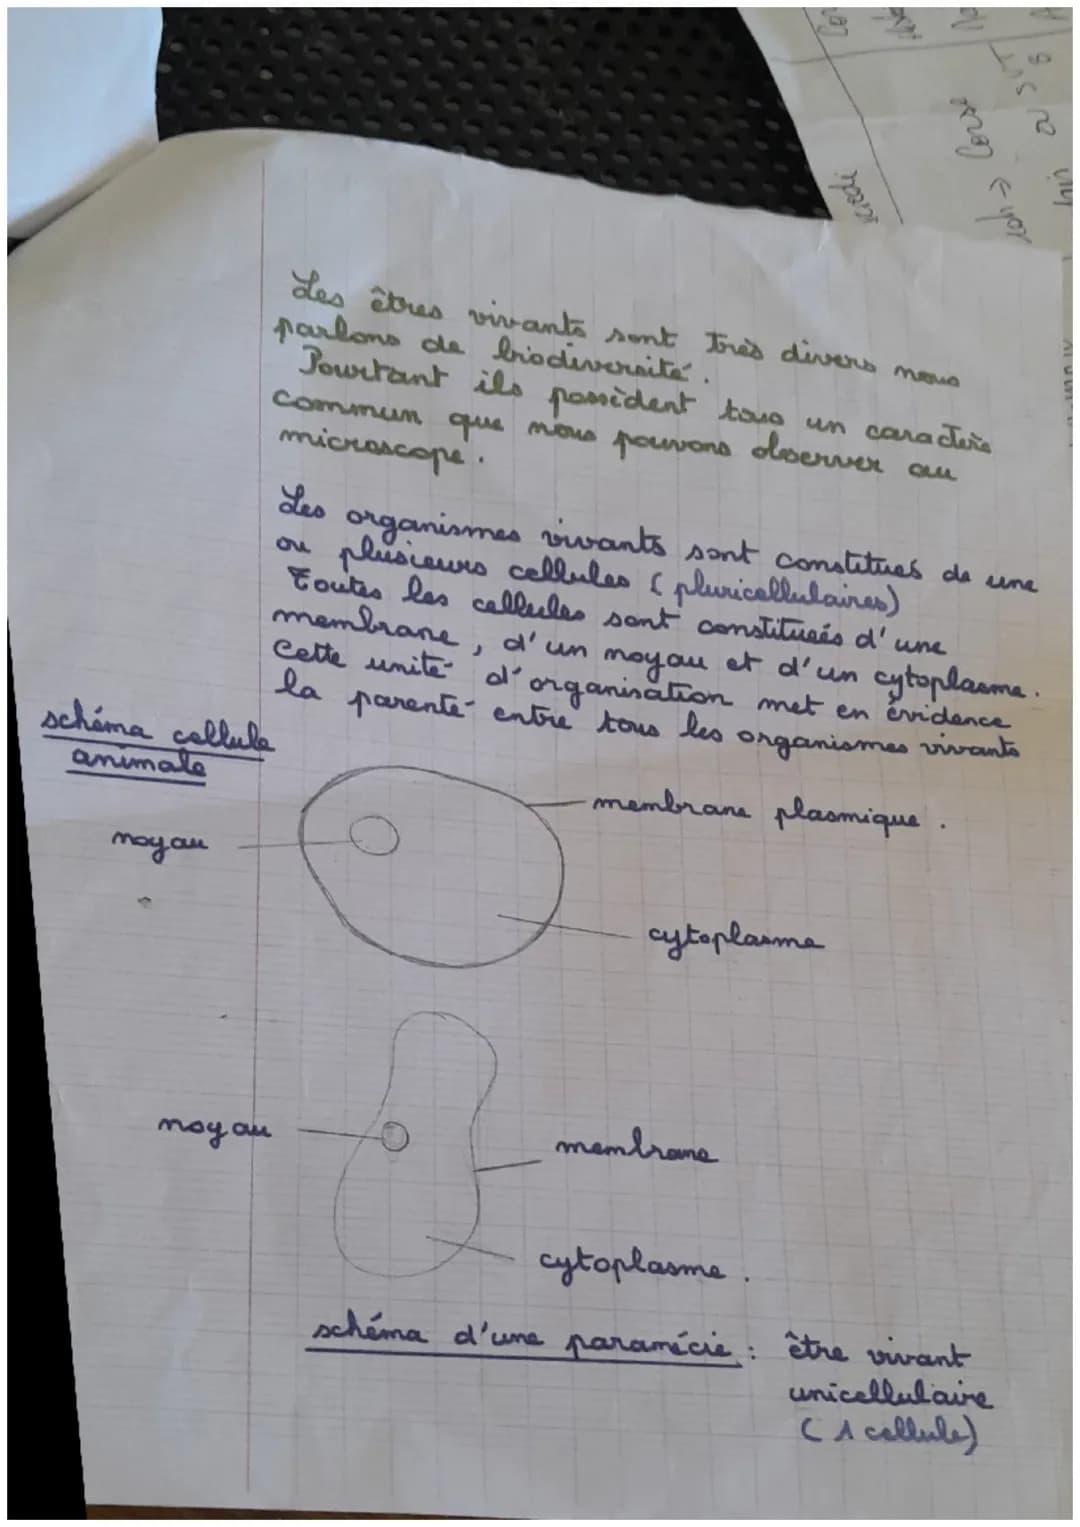 Les êtres vivants sont très divers nous
parlons de biodiversité.
Pourtant ils possèdent tous un caractère
commun que nous pouvons observer au
microscope.
Les organismes vivants sont constitués de une
ou plusieurs cellules (pluricellulaires)
Toutes les cellules sont constituées d'une
membrane, d'un noyau et d'un cytoplasme.
Cette unité d'organisation met en évidence
la parenté entre tous les organismes vivants
schéma cellule
animale
noyau
membrane plasmique.
cytoplasme
noyau
membrane
cytoplasme.
schéma d'une paramécie : être vivant
unicellulaire
(1 cellule)